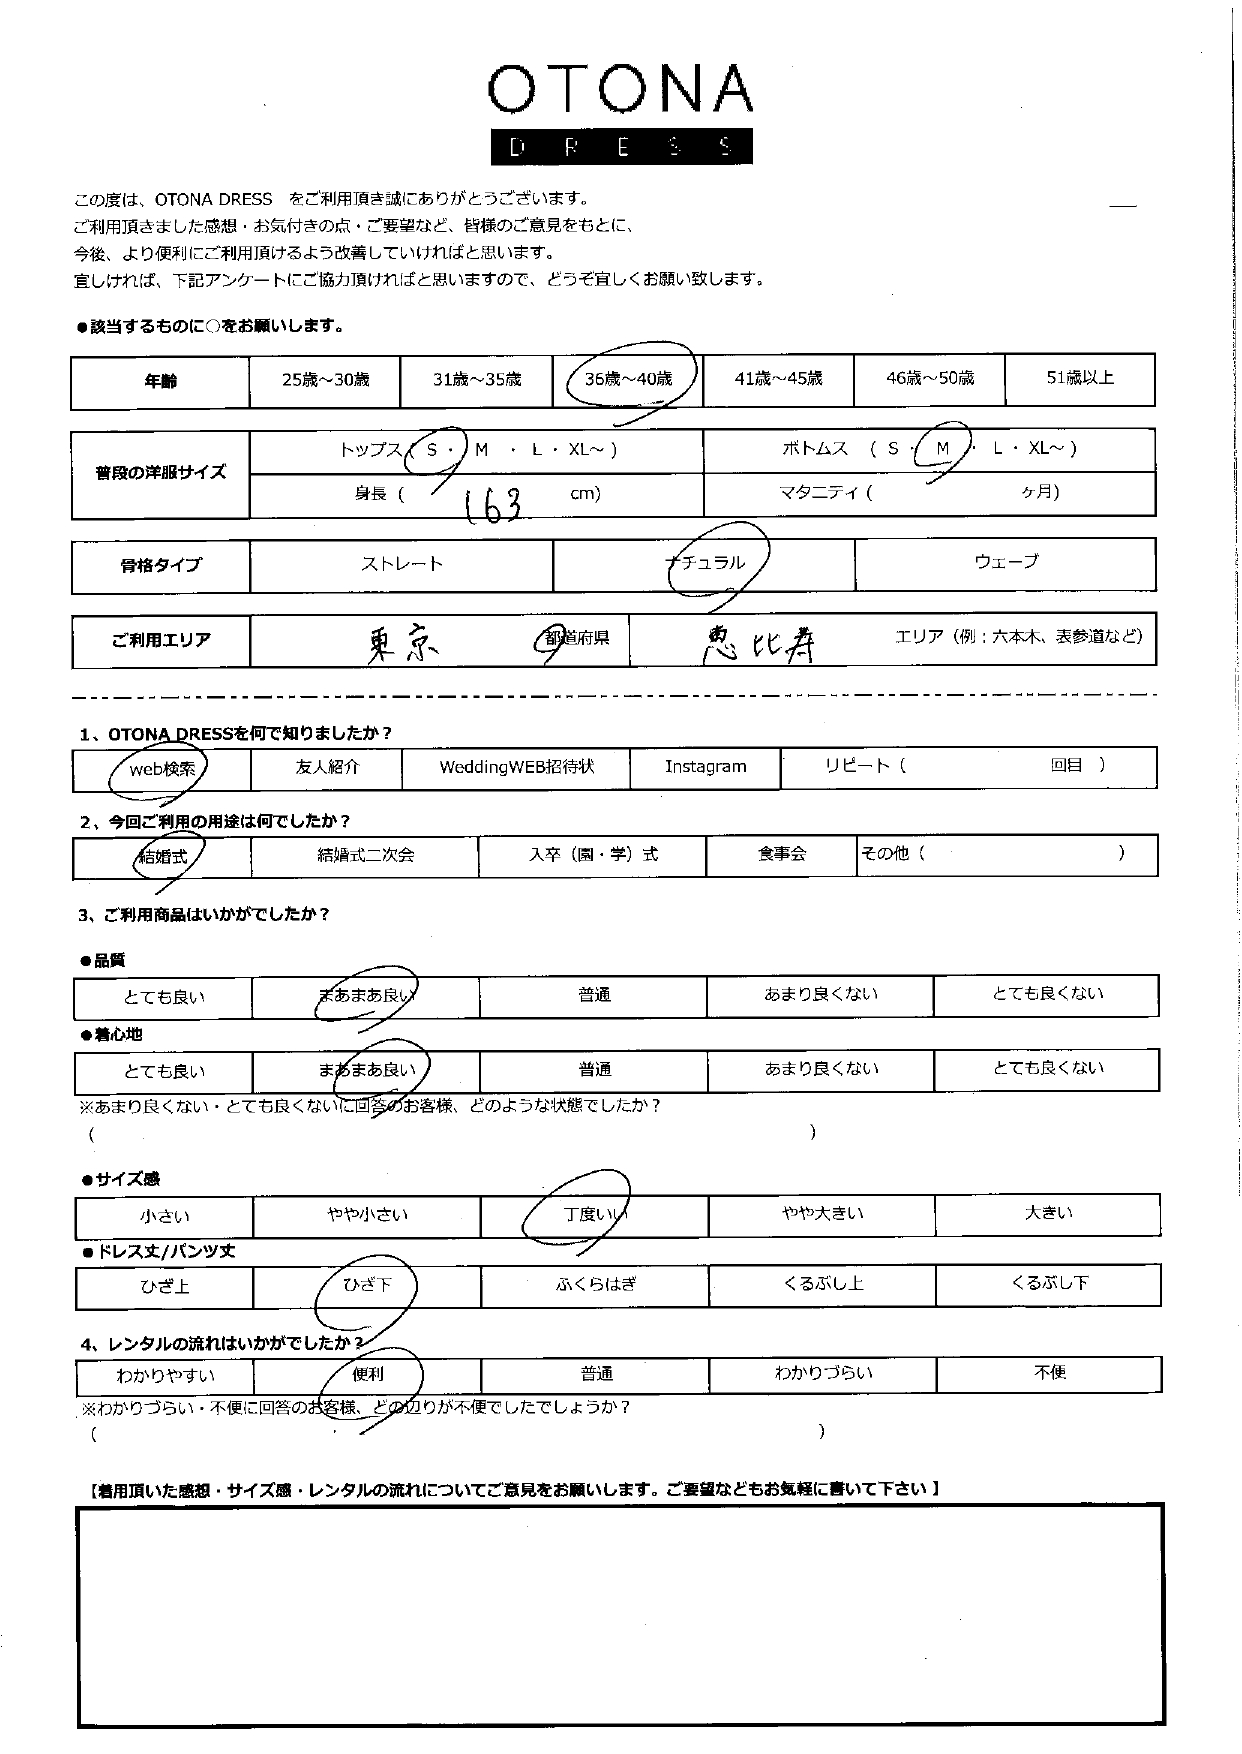 OTONA
DRESS
この度は、OTONA DRESS をご利用頂き誠にありがとうございます。
ご利用頂きました感想・お気付きの点・ご要望など、皆様のご意見をもとに、
今後、より便利にご利用頂けるよう改善していければと思います。
宜しければ、下記アンケートにご協力頂ければと思いますので、どうぞ宜しくお願い致します。
●該当するものに○をお願いします。
年齢 25歳～30歳 31歳～35歳 36歳～40歳 41歳～45歳 46歳～50歳 51歳以上
普段の洋服サイズ トップス( S ・ M ・ L ・ XL～ ) ボトムス ( S ・ M ・ L ・ XL～ )
身長 ( 163 cm) マタニティ ( ヶ月)
骨格タイプ ストレート ナチュラル ウェーブ
ご利用エリア 東京 都道府県 恵比寿 エリア（例：六本木、表参道など）
1、OTONA DRESSを何で知りましたか？
web検索 友人紹介 WeddingWEB招待状 Instagram リピート（ 回目 ）
2、今回ご利用の用途は何でしたか？
結婚式 結婚式二次会 入卒（園・学）式 食事会 その他（ ）
3、ご利用商品はいかがでしたか？
●品質
とても良い まあまあ良い 普通 あまり良くない とても良くない
●着心地
とても良い まあまあ良い 普通 あまり良くない とても良くない
※あまり良くない・とても良くないに回答のお客様、どのような状態でしたか？
( )
●サイズ感
小さい やや小さい 丁度いい やや大きい 大きい
●ドレス丈/パンツ丈
ひざ上 ひざ下 ふくらはぎ くるぶし上 くるぶし下
4、レンタルの流れはいかがでしたか？
わかりやすい 便利 普通 わかりづらい 不便
※わかりづらい・不便に回答のお客様、どの辺りが不便でしたでしょうか？
( )
【着用頂いた感想・サイズ感・レンタルの流れについてご意見をお願いします。ご要望などもお気軽に書いて下さい 】